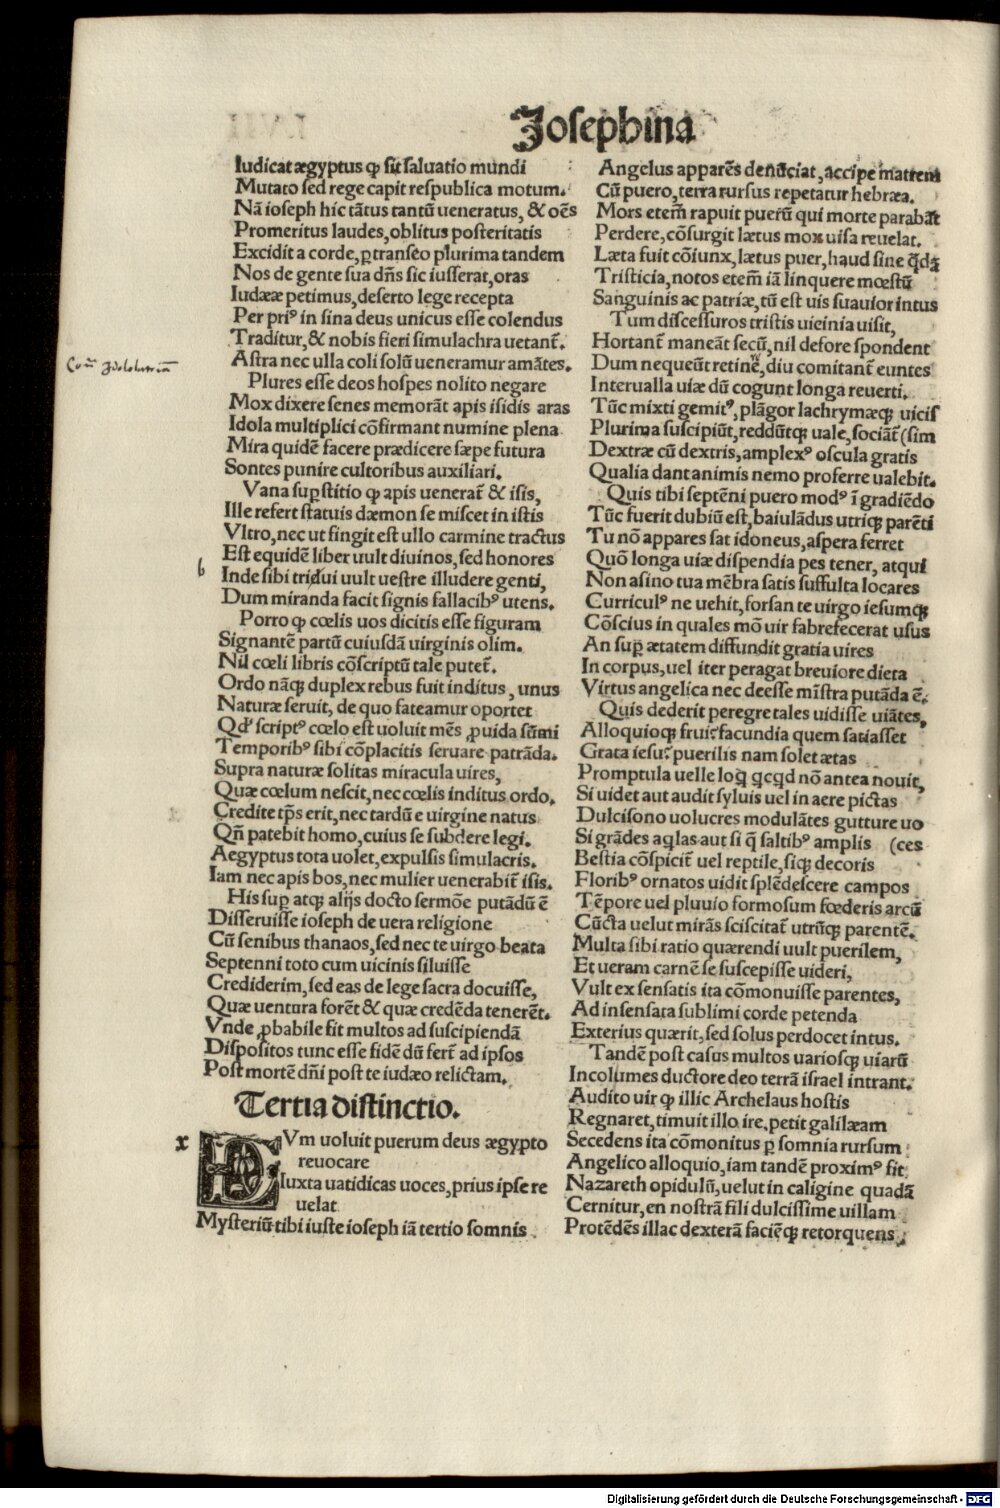 Josephina
Iudicat ægyptus ꝙ sit saluatio mundi
Mutato sed rege capit respublica motum.
Nā ioseph hic tātus tantū ueneratus, & oēs
Promeritus laudes, oblitus posteritatis
Excidit a corde, ꝑtranseo plurima tandem
Nos de gente sua dn̄s sic iusserat, oras
Iudææ petimus, deserto lege recepta
Per priꝰ in sina deus unicus esse colendus
Traditur, & nobis fieri simulachra uetant᷑.
Astra nec ulla coli solū ueneramur amātes.
Plures esse deos hospes nolito negare
Mox dixere senes memorāt apis isidis aras
Idola multiplici cōfirmant numine plena
Mira quidē facere prædicere sæpe futura
Sontes punire cultoribus auxiliari.
Vana suꝑstitio ꝙ apis uenerat᷑ & isis,
Ille refert statuis dæmon se miscet in istis
Vltro, nec ut fingit est ullo carmine tractus
Est equidē liber uult diuinos, sed honores
b
Inde sibi tribui uult uestre illudere genti,
Dum miranda facit signis fallacibꝰ utens.
Porro ꝙ cœlis uos dicitis esse figuram
Signantē partū cuiusdā uirginis olim.
Nil cœli libris cōscriptū tale putet᷑.
Ordo nāqꝫ duplex rebus fuit inditus, unus
Naturæ seruit, de quo fateamur oportet
Qd' scriptꝰ cœlo est uoluit mēs ꝓuida sūmi
Temporibꝰ sibi cōplacitis seruare patrāda.
Supra naturæ solitas miracula uires,
Quæ cœlum nescit, nec cœlis inditus ordo.
Credite tp̄s erit, nec tardū e uirgine natus
Qn̄ patebit homo, cuius se subdere legi.
Aegyptus tota uolet, expulsis simulacris.
Iam nec apis bos, nec mulier uenerabit᷑ isis.
His suꝑ atqꝫ alijs docto sermōe putādū ē
Disseruisse ioseph de uera religione
Cū senibus thanaos, sed nec te uirgo beata
Septenni toto cum uicinis siluisse
Crediderim, sed eas de lege sacra docuisse,
Quæ uentura forēt & quæ credēda tenerēt.
Vnde ꝓbabile fit multos ad suscipiendā
Dispositos tunc esse fidē dū fert᷑ ad ipsos
Post mortē dn̄i post te iudæo relictam.
Tertia distinctio.
x
DVm uoluit puerum deus ægypto
reuocare
Iuxta uatidicas uoces, prius ipse re
uelat
Mysteriū tibi iuste ioseph iā tertio somnis
Angelus apparēs denūciat, accipe matrem
Cū puero, terra rursus repetatur hebræa.
Mors etem̄ rapuit puerū qui morte parabāt
Perdere, cōsurgit lætus mox uisa reuelat.
Læta fuit cōiunx, lætus puer, haud sine q̄dā
Tristicia, notos etem̄ iā linquere mœstū
Sanguinis ac patriæ, tū est uis suauior intus
Tum discessuros tristis uicinia uisit,
Hortant᷑ maneāt secū, nil defore spondent
Dum nequeūt retinē, diu comitant᷑ euntes
Interualla uiæ dū cogunt longa reuerti.
Tūc mixti gemitꝰ, plāgor lachrymæqꝫ uicis
Plurima suscipiūt, reddūtqꝫ uale, sociāt᷑ (sim
Dextræ cū dextris, amplexꝰ oscula gratis
Qualia dant animis nemo proferre ualebit.
Quis tibi septēni puero modꝰ ī gradiēdo
Tūc fuerit dubiū est, baiulādus utriqꝫ parēti
Tu nō appares sat idoneus, aspera ferret
Quō longa uiæ dispendia pes tener, atqui
Non asino tua mēbra satis suffulta locares
Curriculꝰ ne uehit, forsan te uirgo iesumqꝫ
Cōscius in quales mō uir fabrefecerat usus
An suꝑ ætatem diffundit gratia uires
In corpus, uel iter peragat breuiore dieta
Virtus angelica nec deesse mīstra putāda ē.
Quis dederit peregre tales uidisse uiātes,
Alloquioqꝫ frui? facundia quem satiasset
Grata iesu? puerilis nam solet ætas
Promptula uelle loq̄ qcqd nō antea nouit,
Si uidet aut audit syluis uel in aere pictas
Dulcisono uolucres modulātes gutture uo
Si grādes aqlas aut si q̄ saltibꝰ amplis (ces
Bestia cōspicit᷑ uel reptile, siqꝫ decoris
Floribꝰ ornatos uidit splēdescere campos
Tēpore uel pluuio formosum fœderis arcū
Cūcta uelut mirās sciscitat᷑ utrūqꝫ parentē.
Multa sibi ratio quærendi uult puerilem,
Et ueram carnē se suscepisse uideri,
Vult ex sensatis ita cōmonuisse parentes,
Ad insensata sublimi corde petenda
Exterius quærit, sed solus perdocet intus.
Tandē post casus multos uariosqꝫ uiarū
Incolumes ductore deo terrā israel intrant.
Audito uir ꝙ illic Archelaus hostis
Regnaret, timuit illo ire, petit galilæam
Secedens ita cōmonitus ꝑ somnia rursum
Angelico alloquio, iam tandē proximꝰ fit
Nazareth opidulū, uelut in caligine quadā
Cernitur, en nostrā fili dulcissime uillam
Protēdēs illac dexterā faciēqꝫ retorquens,
Digitalisierung gefördert durch die Deutsche Forschungsgemeinschaft - DFG